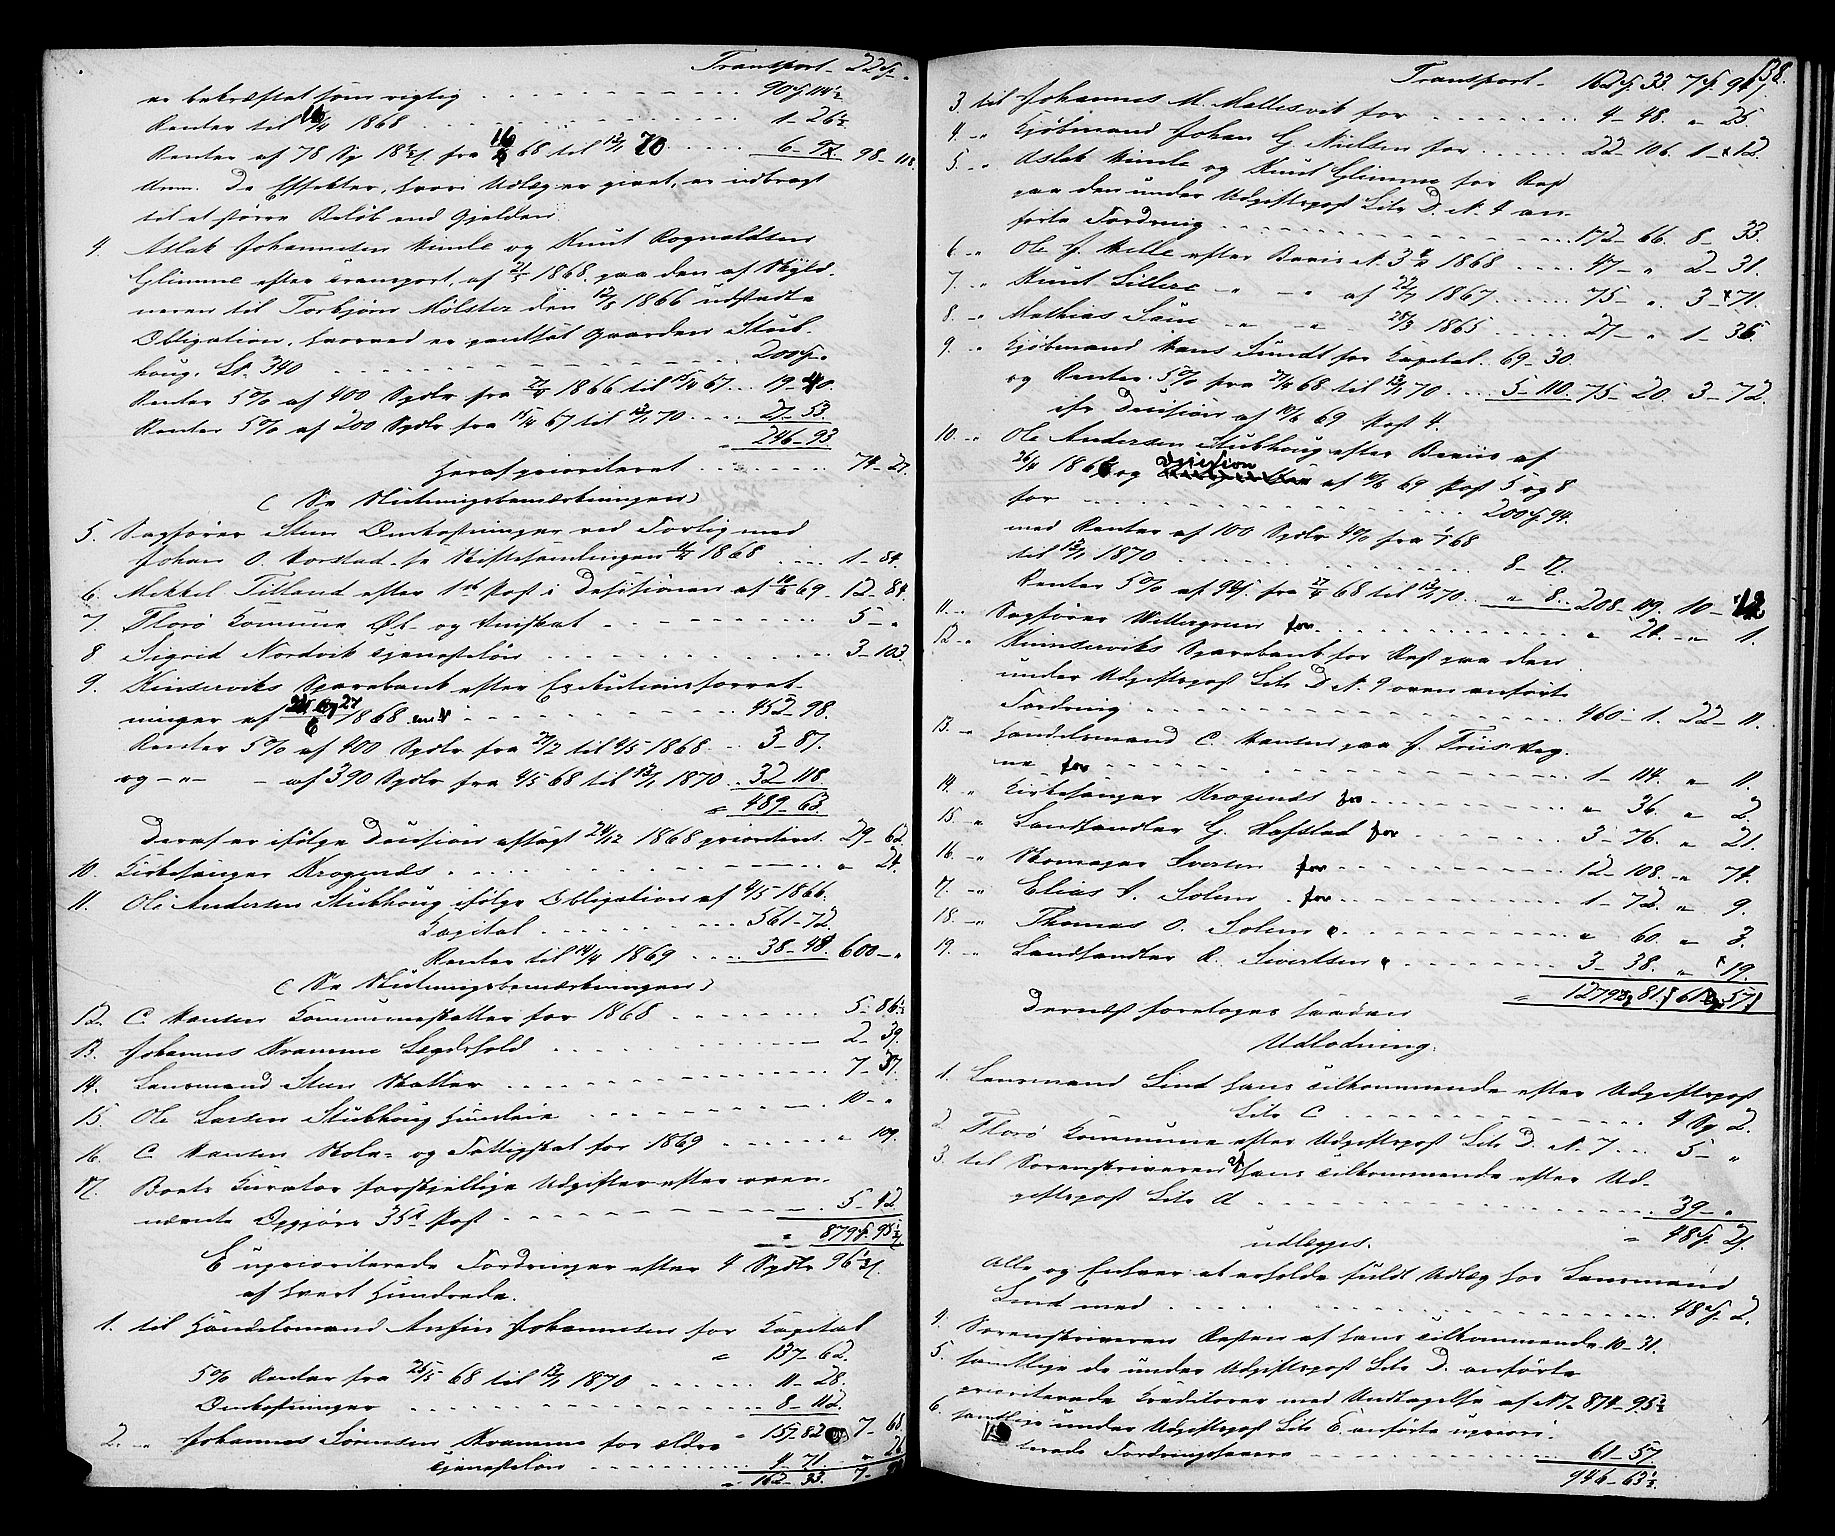 Transport - 22 Sp -
er bekræftet som rigtig . . . 90 Sp 114½
Renter til 16/4 1868 . . . 1 - 26½
Renter af 78 Sp 18½ s. fra 16/4 68 til 12/1 70 . . . 6 - 97. 98 - 118.
Anm. De Effekter, hvori Udlæg er givet, er udbragt
til et større Beløb end Gjælden.
4. Aslak Johannesen Himle og Knut Rognaldsen
Glimme efter Transport, af 21/1 1868 paa den af Skyld-
neren til Torbjørn Mølster den 12/5 1866 udstedte
Obligation, hvorved er pantsat Gaarden Stub-
houg. Lt. 340 . . . 200 Sp "
Renter 5% af 400 Spdlr fra 1866 til 15/4 67 . . 19 - 40.
Renter 5% af 200 Spdlr fra 15/4 67 til 12/1 70 . . . 27 - 53.
= 246 - 93
Heraf prioriteret . . . 74 - 27.
(Se Slutningsbemærkningen)
5. Sagfører Steen Omkostninger ved Forlig med
Johan O. Horstad. se Skiftesamlingen 1868 . . . 1 - 84.
6. Mikkel Tilland efter 1ste Post i Desisionen af 10/6 69 - 12 - 84.
7. Florø Kommune Øl- og Vinskat . . . 5 - "
8 Sigrid Nordvik Tjenesteløn . . . 3 - 103.
9. Kinserviks Sparebank efter Exekutionsforret-
ninger af 24 og 27/6 1868 . . . 452 - 98.
Renter 5% af 400 Spdlr fra 21/2 til 4/5 1868 . . 3 - 87.
og - " - - af 390 Spdlr fra 4/5 68 til 12/1 1870 . . 32 - 118.
= 489 - 63.
Deraf er ifølge Decision afsagt 24/12 1868 prioriteret. 29 - 62.
10. Kirkesanger Krogenæs . . . " 24.
11. Ole Andersen Stubhoug ifølge Obligation af 4/5 1866.
Kapital . . . 561 - 72.
Renter til 14/4 1869 . . . 38 - 48. 600 - "
(Se Slutningsbemærkningen)
12. C. Hansen Kommuneskatter for 1868 . . . 5 - 86½
13. Johannes Kramme Lægdshold . . . 2 - 39.
14. Lensmand Steen Skatter . . . 7 - 37.
15. Ole Larsen Stubhoug Huusleie . . . 10 - "
16. C. Hansen Skole- og Fattigskat for 1869 . . . " 109.
17. Boets Kurator forskjellige Udgifter efter oven-
nævnte Opgjørs 35te Post . . . 5 - 12
= 879 Sp. 95½ s
E uprioriterede Fordringer efter 4 Spdlr 96½ s.
af hvert Hundrede.
1. til Handelsmand Ansin Johannesen for Kapital
= 137 - 62.
5% Renter fra 25/5 68 til 12/1 1870 . . . 11 - 28.
Omkostninger . . . 8 - 112.
= 157 - 82 7 - 68
2. - " Johannes Sørensen Kramme for ældre
Tjenesteløn . . . 4 - 71. " 26
= 162 - 33. 7 - 94
138.
Transport - 162 Sp 33. 7 Sp 94 s
3 til Johannes M. Mallesvik for . . . 4 - 48. " 25.
4. - " Kjøbmand Johan G. Nielsen for . . . 22 - 106. 1 - 12.
5. - " Aslak Himle og Knut Glimme for Rest
paa den under Udgiftspost Litr D. N. 4 an-
førte Fordring . . . 172 - 66. 8 - 33.
6. - " Ole J. Helle efter Bevis N. 3 1868 . . . 47 - " 2 - 31.
7. - " Knut Lillere - " - " af 22/7 1867 . . . 75 - " 3 - 71.
8. - " Mathias Saue - " - " 28/3 1865 . . . 27 - " 1 - 36.
9. - " Kjøbmand Hans Sundt for Kapital . 69 - 30.
og Renter 5% fra 68 til 12/1 70 . . . 5 - 110. 75 - 20. 3 - 72.
ifr. Decision af 10/6 69 Post 4.
10. - " Ole Andersen Stubhoug efter Bevis af
26/11 186 og Decision af 10/6 69 Post 5 og 8
for . . . 200 Sp 94.
med Renter af 100 Spdlr 4% fra 68
til 12/1 1870 . . . 8 - 17.
Renter 5% af 94 s. fra 68 til 12/1 70 . . " 8. 208 - 119. 10 - 12
11. - " Sagfører Wettergreen for . . . " 21. - " 1.
12. - " Kinserviks Sparebank for Rest paa den
under Udgiftspost Litr D N. 9 oven anførte
Fordring . . . 460 - 1. 22 - 11.
13. - " Handelsmand C. Hansen paa J. Friis Reg-
ne for . . . 1 - 114. " 11.
14. - " Kirkesanger Krogenæs for . . . " 36. " 2.
15. - " Landhandler G. Hafstad for . . . 3 - 76. " 21.
16. - " Skomager Iversen for . . . 12 - 108. - " 74.
17. - " Elias A. Solem for . . . 1 - 72. " 9.
18. - " Thomas O. Solem " . . . " 60. " 3.
19. - " Landhandler R. Sivertsen " . . . 3 - 38. " 19.
= 1279 Sp 81 s 61 Sp 57 s
Dernæst foretoges saadan
Udlodning.
1. Lensmand Lind hans Tilkommende efter Udgiftspost
Litr C . . . 4 Sp 2.
2. Florø Kommune efter Udgiftspost Litr D. N. 7 . . . 5 - "
3. til Sorenskriveren hans Tilkommende efter Ud-
giftspost Litr A . . . 39 - "
= 48 Sp 2 s.
udlægges.
Alle og Enhver at erholde fuldt Udlæg for Lensmand
Lind med . . . 48 Sp 2.
4. Sorenskriveren Resten af hans Tilkommende 10 - 31.
5. samtlige de under Udgiftspost Litr D. anførte
prioriterede Kreditorer med Undtagelse af N 7 - 874 - 95½
6. samtlige under Udgiftspost Litr E. anførte upriori-
terede Fordringshavere . . . 61 - 57.
946 - 63½